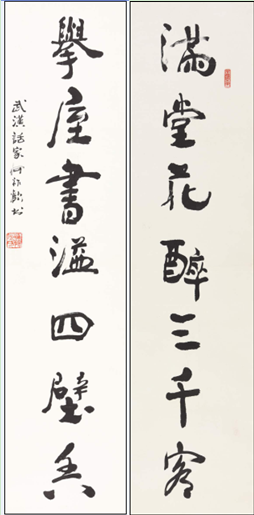 滿堂花醉三千客
舉屋書溢四壁香
武漢話家何祚歡書